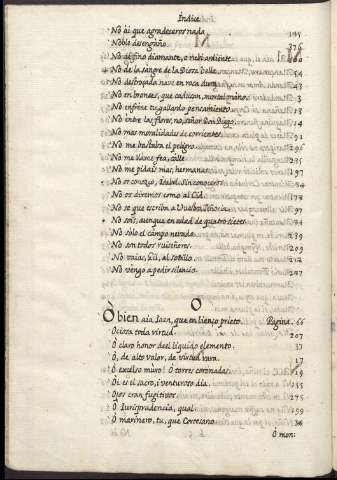 Indice
No ai que agradeceros nada 195
Noble desengaño. 376
No de fino diamante, o rubi ardiente
No de la sangre de la Diosa bella
No destroçada nave en roca dura
No en bronces, que caducan, mortal mano
No enfrene tu gallardo pensamiento
No entre las flores, no, señor Don Diego 14
No mas moralidades de corrientes 291
No me bastaba el peligro 296
No me llame fea, calle 235
No me pidais mas, hermanas 197
No os conozco, Isabel, sin conoceros 54
No os diremos como al Cid 178
No se que escriba a Usiría 97
No sois, aunque en edad de quatro sietes 74
No solo el campo nevado 239
No son todos ruiseñores 209
No vaias, Gil, al sotillo 272
No vengo a pedir silencio 277
O
O bien aia Iaen, que en lienço prieto Pagina. 66
Ociosa toda virtud 207
O claro honor del liquido elemento 37
O, de alto valor, de virtud rara 17
O excelso muro! O torres coronadas 19
Oi es el sacro, i venturoso dia 135
Ojos eran fugitivos 275
O Iurisprudencia, qual 199
O marinero, tu, que Cortesano 36
O mon: